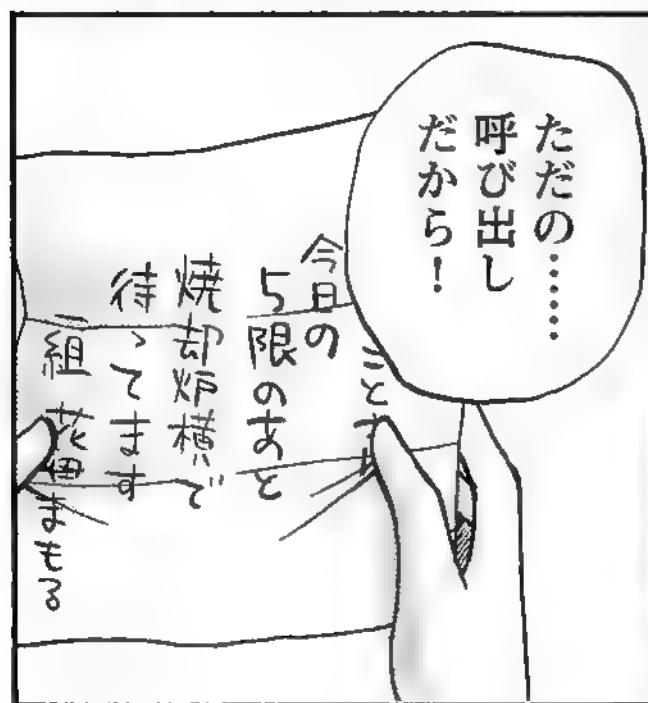 ただの……
呼び出し
だから！
今日の
5限のあと
焼却炉横で
待ってます
組 花田まさる